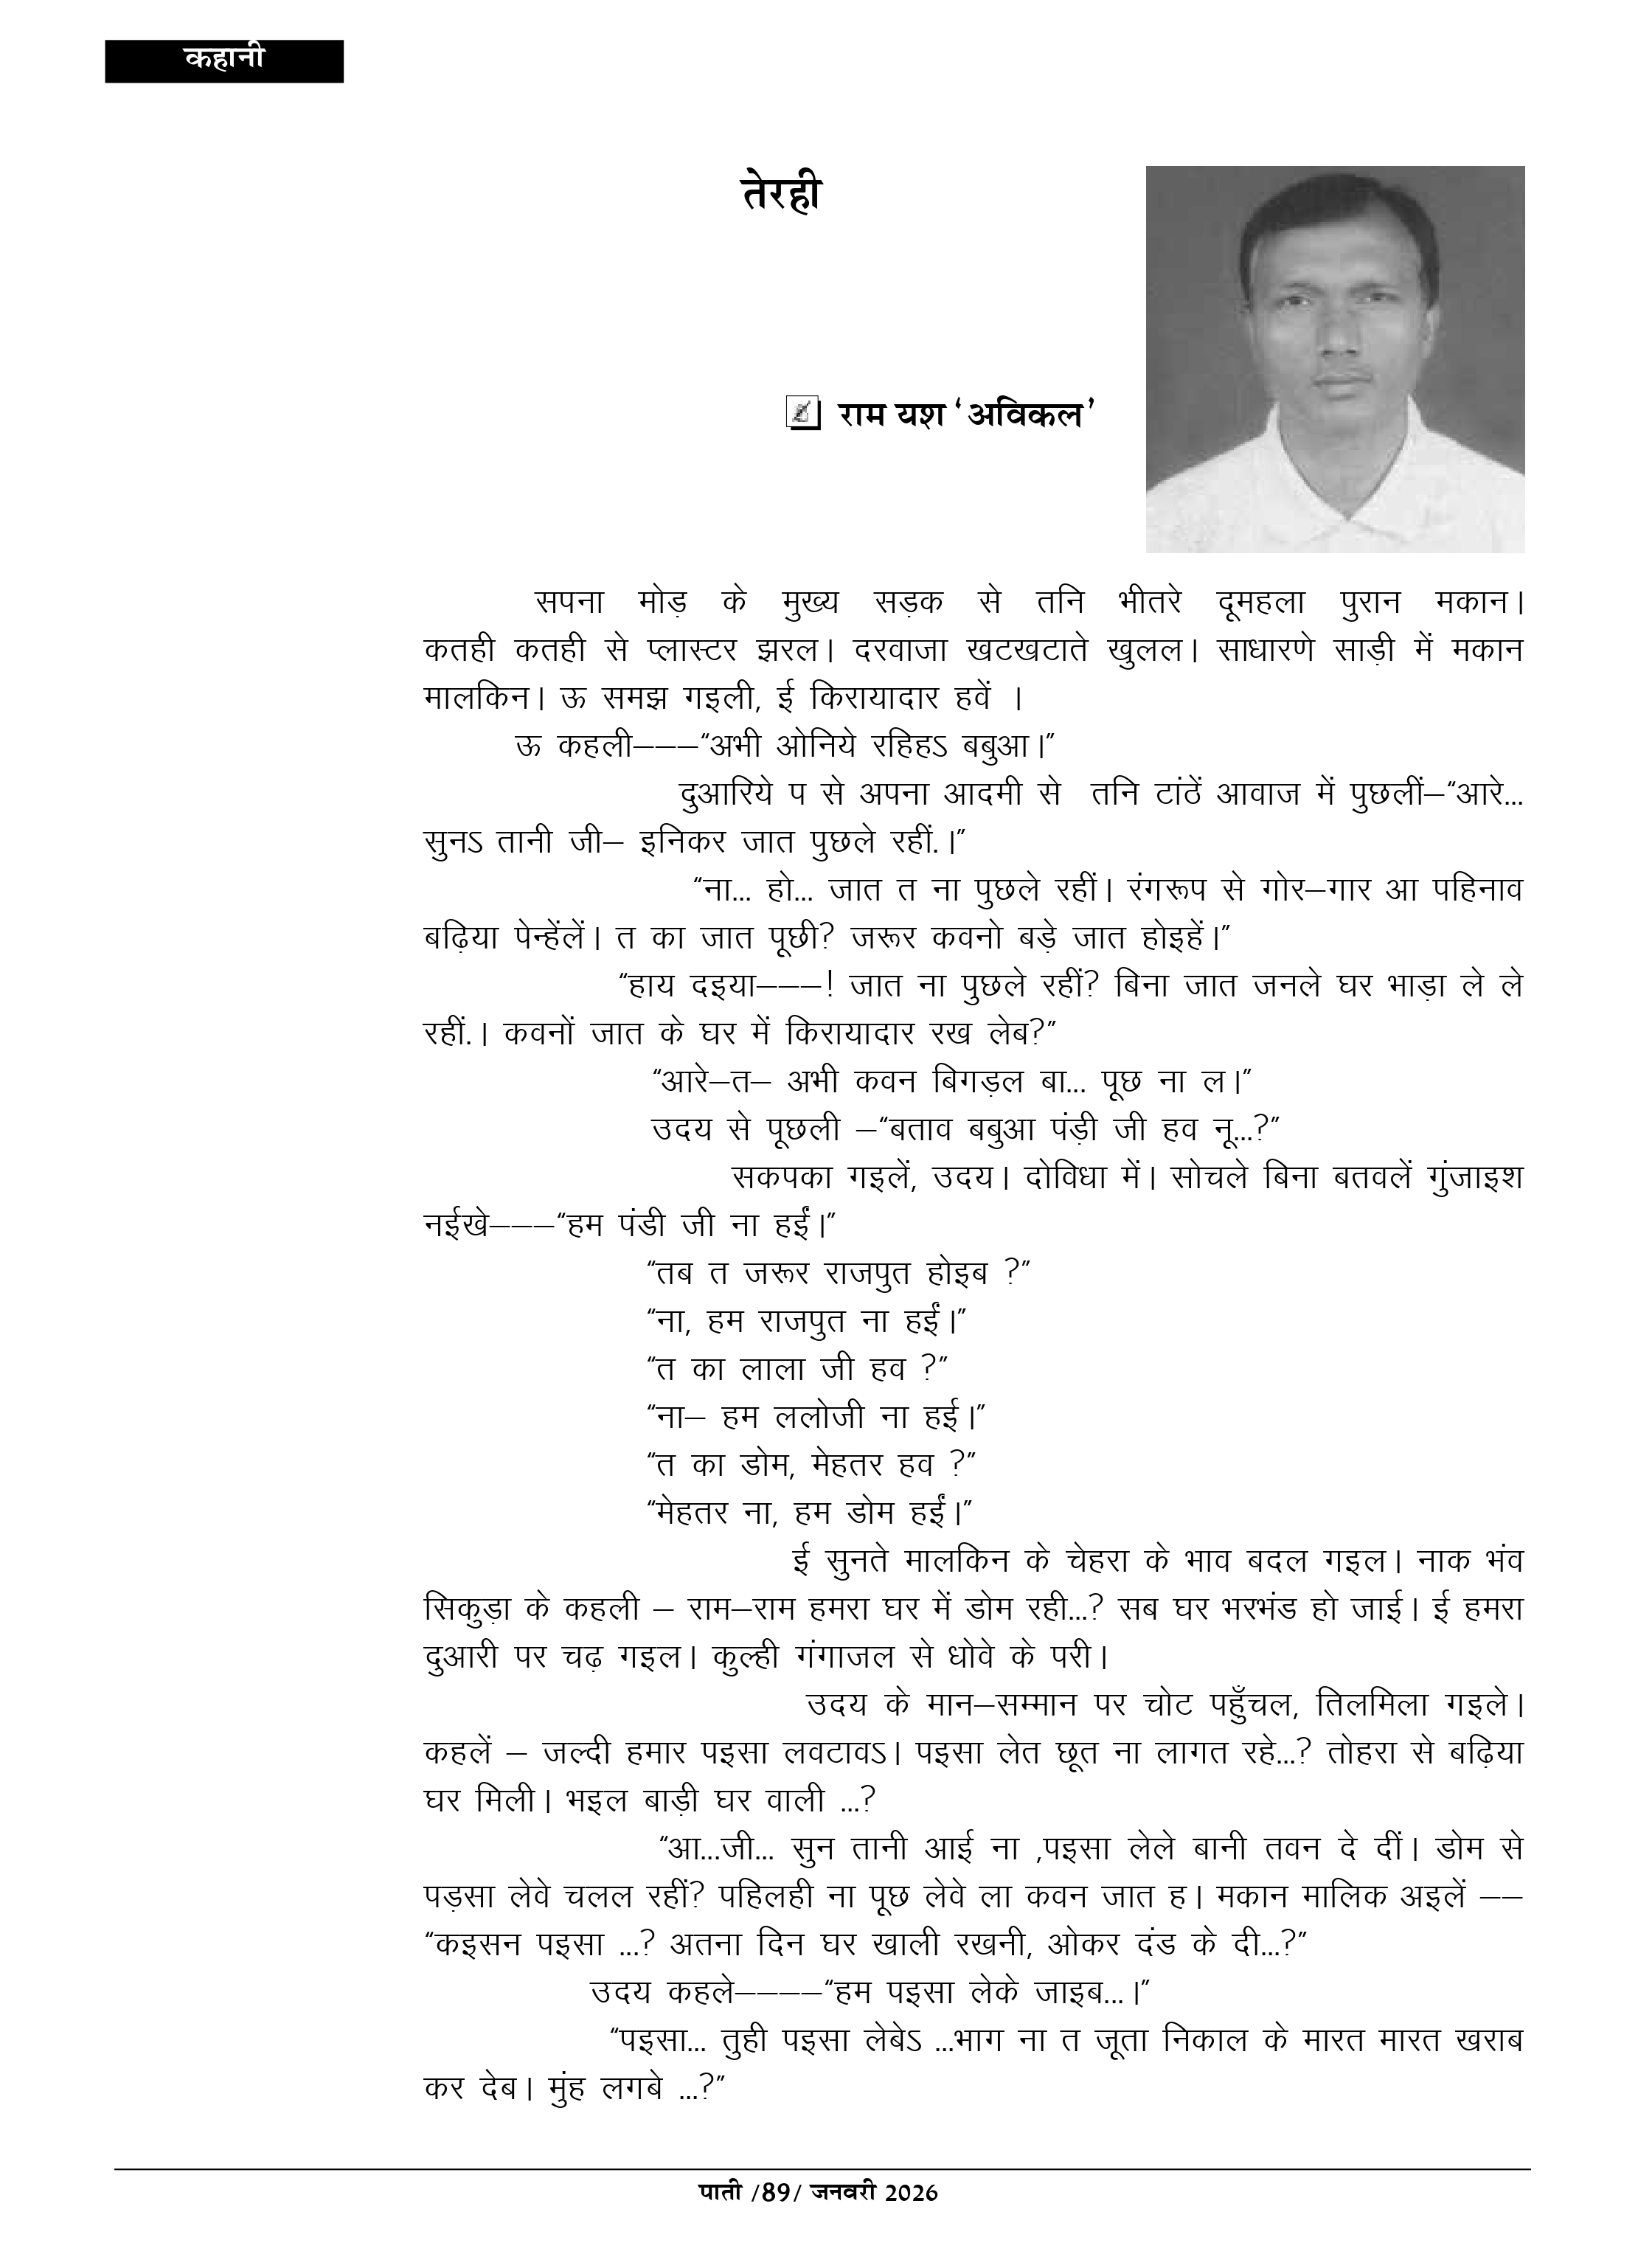 कहानी
तेरही
राम यश ‘अविकल’
सपना मोड़ के मुख्य सड़क से तनि भीतरे दूमहला पुरान मकान।
कतही कतही से प्लास्टर झरल। दरवाजा खटखटाते खुलल। साधारणे साड़ी में मकान
मालकिन। ऊ समझ गइली, ई किरायादार हवें ।
ऊ कहली–––“अभी ओनिये रहिहऽ बबुआ।”
दुआरिये प से अपना आदमी से तनि टांठें आवाज में पुछलीं–“आरे...
सुनऽ तानी जी– इनिकर जात पुछले रहीं.।”
“ना... हो... जात त ना पुछले रहीं। रंगरूप से गोर–गार आ पहिनाव
बढ़िया पेन्हेंलें। त का जात पूछी? जरूर कवनो बड़े जात होइहें।”
“हाय दइया–––! जात ना पुछले रहीं? बिना जात जनले घर भाड़ा ले ले
रहीं.। कवनों जात के घर में किरायादार रख लेब?”
“आरे–त– अभी कवन बिगड़ल बा... पूछ ना ल।”
उदय से पूछली –“बताव बबुआ पंड़ी जी हव नू...?”
सकपका गइलें, उदय। दोविधा में। सोचले बिना बतवलें गुंजाइश
नईखे–––“हम पंडी जी ना हईं।”
“तब त जरूर राजपुत होइब ?”
“ना, हम राजपुत ना हईं।”
“त का लाला जी हव ?”
“ना– हम ललोजी ना हई।”
“त का डोम, मेहतर हव ?”
“मेहतर ना, हम डोम हईं।”
ई सुनते मालकिन के चेहरा के भाव बदल गइल। नाक भंव
सिकुड़ा के कहली – राम–राम हमरा घर में डोम रही...? सब घर भरभंड हो जाई। ई हमरा
दुआरी पर चढ़ गइल। कुल्ही गंगाजल से धोवे के परी।
उदय के मान–सम्मान पर चोट पहुँचल, तिलमिला गइले।
कहलें – जल्दी हमार पइसा लवटावऽ। पइसा लेत छूत ना लागत रहे...? तोहरा से बढ़िया
घर मिली। भइल बाड़ी घर वाली ...?
“आ...जी... सुन तानी आई ना ,पइसा लेले बानी तवन दे दीं। डोम से
पड़सा लेवे चलल रहीं? पहिलही ना पूछ लेवे ला कवन जात ह। मकान मालिक अइलें ––
“कइसन पइसा ...? अतना दिन घर खाली रखनी, ओकर दंड के दी...?”
उदय कहले––––“हम पइसा लेके जाइब...।”
“पइसा... तुही पइसा लेबेऽ ...भाग ना त जूता निकाल के मारत मारत खराब
कर देब। मुंह लगबे ...?”
पाती /89/ जनवरी 2026